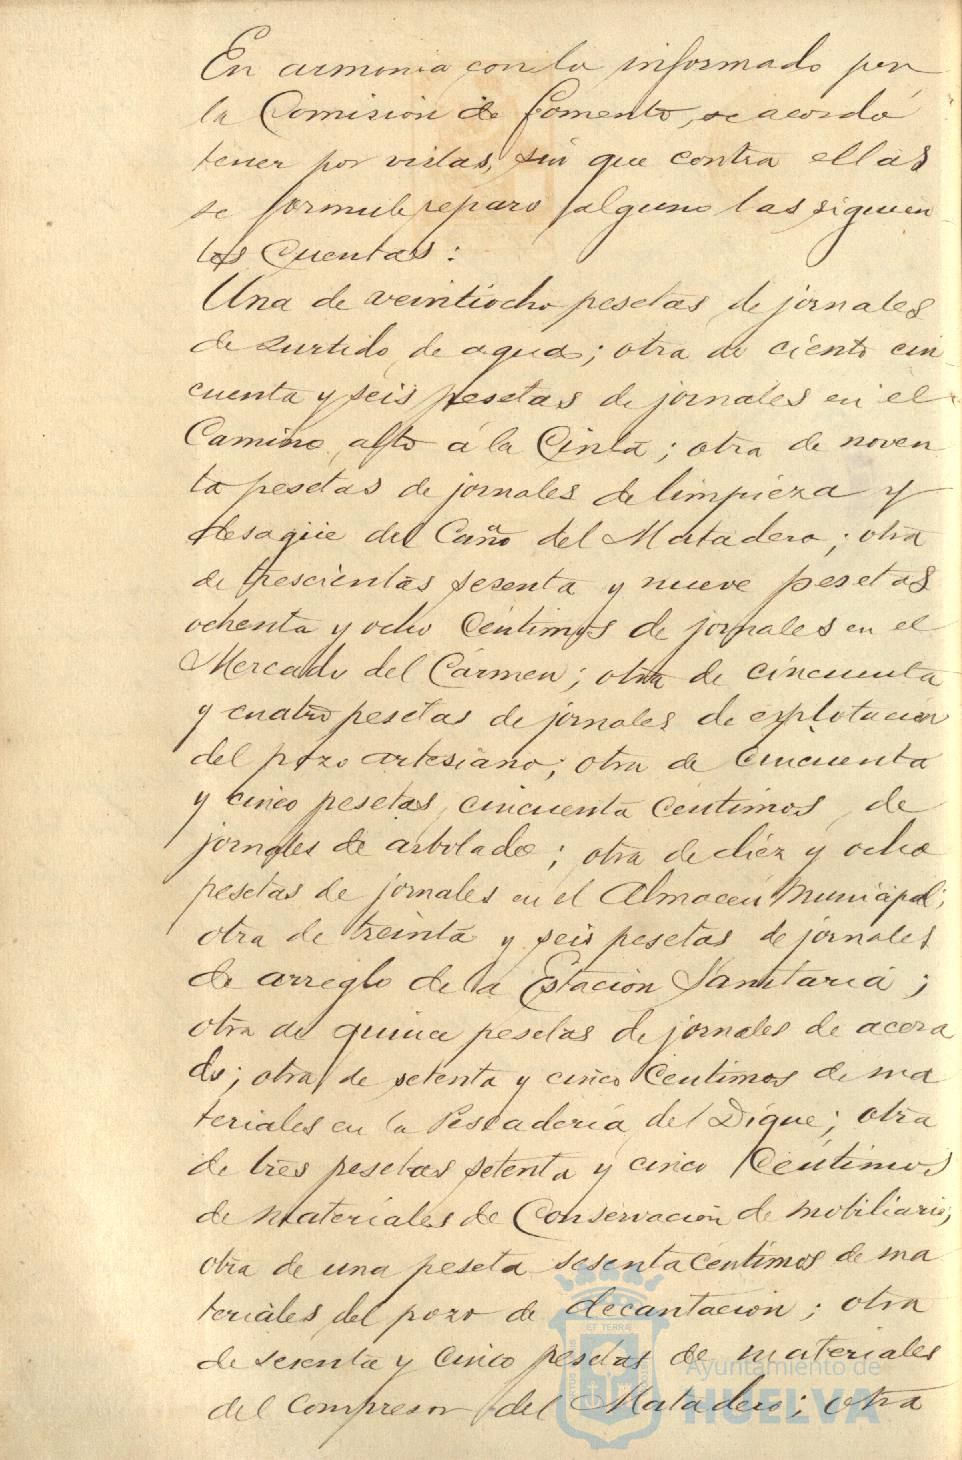 En armonia con lo informado por
la Comision de Fomento, se acordó
tener por vistas, sin que contra ellas
se formule reparo alguno las siguien
tes Cuentas:
Una de veintiocho pesetas de jornales
de surtido de agua; otra de ciento cin
cuenta y seis pesetas de jornales en el
Camino alto á la Cinta; otra de noven
ta pesetas de jornales de limpieza y
desagüe del Caño del Matadero; otra
de trescientas sesenta y nueve pesetas
ochenta y ocho Céntimos de jornales en el
Mercado del Cármen; otra de cincuenta
y cuatro pesetas de jornales de explotacion
del pozo artesiano; otra de cincuenta
y cinco pesetas, cincuenta centimos, de
jornales de arbolado; otra de diéz y ocho
pesetas de jornales en el Almacen Municipal;
otra de treinta y seis pesetas de jornales
de arreglo de la Estacion Sanitaria;
otra de quince pesetas de jornales de acera
do; otra de setenta y cinco Centimos de ma
teriales en la Pescaderia del Dique; otra
de tres pesetas setenta y cinco Céntimos
de materiales de Conservacion de mobiliario;
otra de una peseta sesenta céntimos de ma
teriales del pozo de decantacion; otra
de sesenta y cinco pesetas de materiales
del Compresor del Matadero; otra
ET TERRÆ
Ayuntamiento de
HUELVA